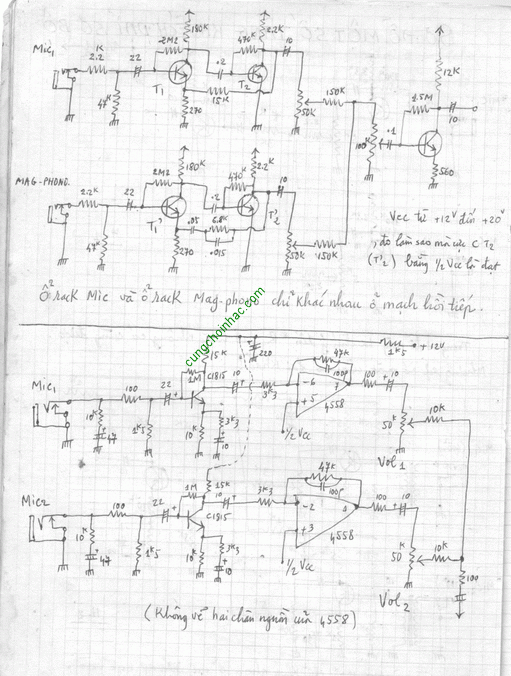 180K
2.2K
Mic1
1K
2.2
22
2M2
470K
10
T1
.2
T2
15K
47K
270
50K
150K
100K
.1
12K
1.5M
10
560
MAG-PHONO
2.2K
22
2M2
180K
470K
2.2K
10
T1'
.2
T2'
.05
6.8K
.015
47K
270
50K
150K
Vcc từ +12V đến +20V
, đo làm sao mà cực C T2
(T'2) bằng 1/2 Vcc là đạt
Ổ rack Mic và ổ rack Mag-phono chỉ khác nhau ở mạch hồi tiếp.
cungchoinhac.com
15K
220
1K5
+12V
Mic1
100
22
1M
C1815
10
3K3
47K
100P
-6
7
+5
4558
100
10
10K
47
1K5
10K
3K3
10
1/2 Vcc
50K
10K
Vol1
Mic2
100
22
1M
15K
C1815
10
3K3
47K
100P
-2
1
+3
4558
100
10
10K
47
1K5
10K
3K3
10
1/2 Vcc
50K
10K
100
Vol2
(Không vẽ hai chân nguồn của 4558)